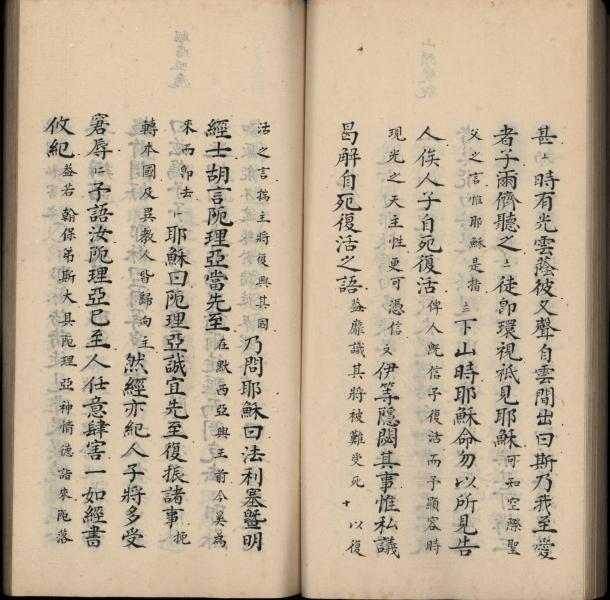 甚〻時有光雲蔭彼又聲自雲間出曰斯乃我至愛
者子爾儕聽之〻徒卽環視祇見耶穌可知空際聖
父之言惟耶穌是指〻下山時耶穌命勿以所見告
人俟人子自死復活俾人旣信子復活而予顯容時
現光之天主性更可憑信〻伊等隱閟其事惟私議
曷解自死復活之語葢靡識其將被難受死十以復
活之言爲主將復興其國乃問耶穌曰法利塞曁明
經士胡言阨理亞當先至在默西亞興王前今奚爲
來而卽去〻耶穌曰阨理亞誠宜先至復振諸事扼
轉本國及異教人皆歸向主然經亦紀人子將多受
窘辱〻予語汝阨理亞已至人任意肆害一如經書
攸紀葢若翰保弟斯大具阨理亞神情德諧來阨落